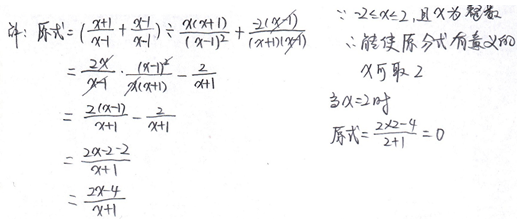 解：原式=(\frac{x+1}{x-1}+\frac{x-1}{x-1})÷\frac{x(x+1)}{(x-1)^2}+\frac{-2(x-1)}{(x+1)(x-1)}
=\frac{2x}{x-1}·\frac{(x-1)^2}{x(x+1)}-\frac{2}{x+1}
=\frac{2(x-1)}{x+1}-\frac{2}{x+1}
=\frac{2x-2-2}{x+1}
=\frac{2x-4}{x+1}
∵ -2≤x≤2,且x为整数
∴能使原分式有意义的
x可取2
当x=2时
原式=\frac{2×2-4}{2+1}=0